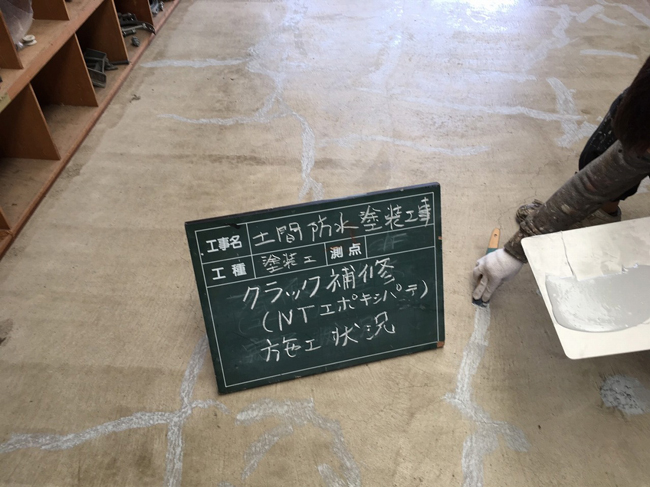 工事名 土間防水塗装工事
工種 塗装工 測点
クラック補修
(NTエポキシパテ)
施工状況